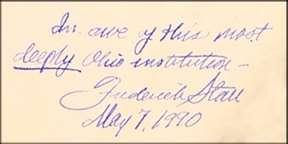 In awe of this most
deeply Ohio institution –
Frederick
May 7, 1990